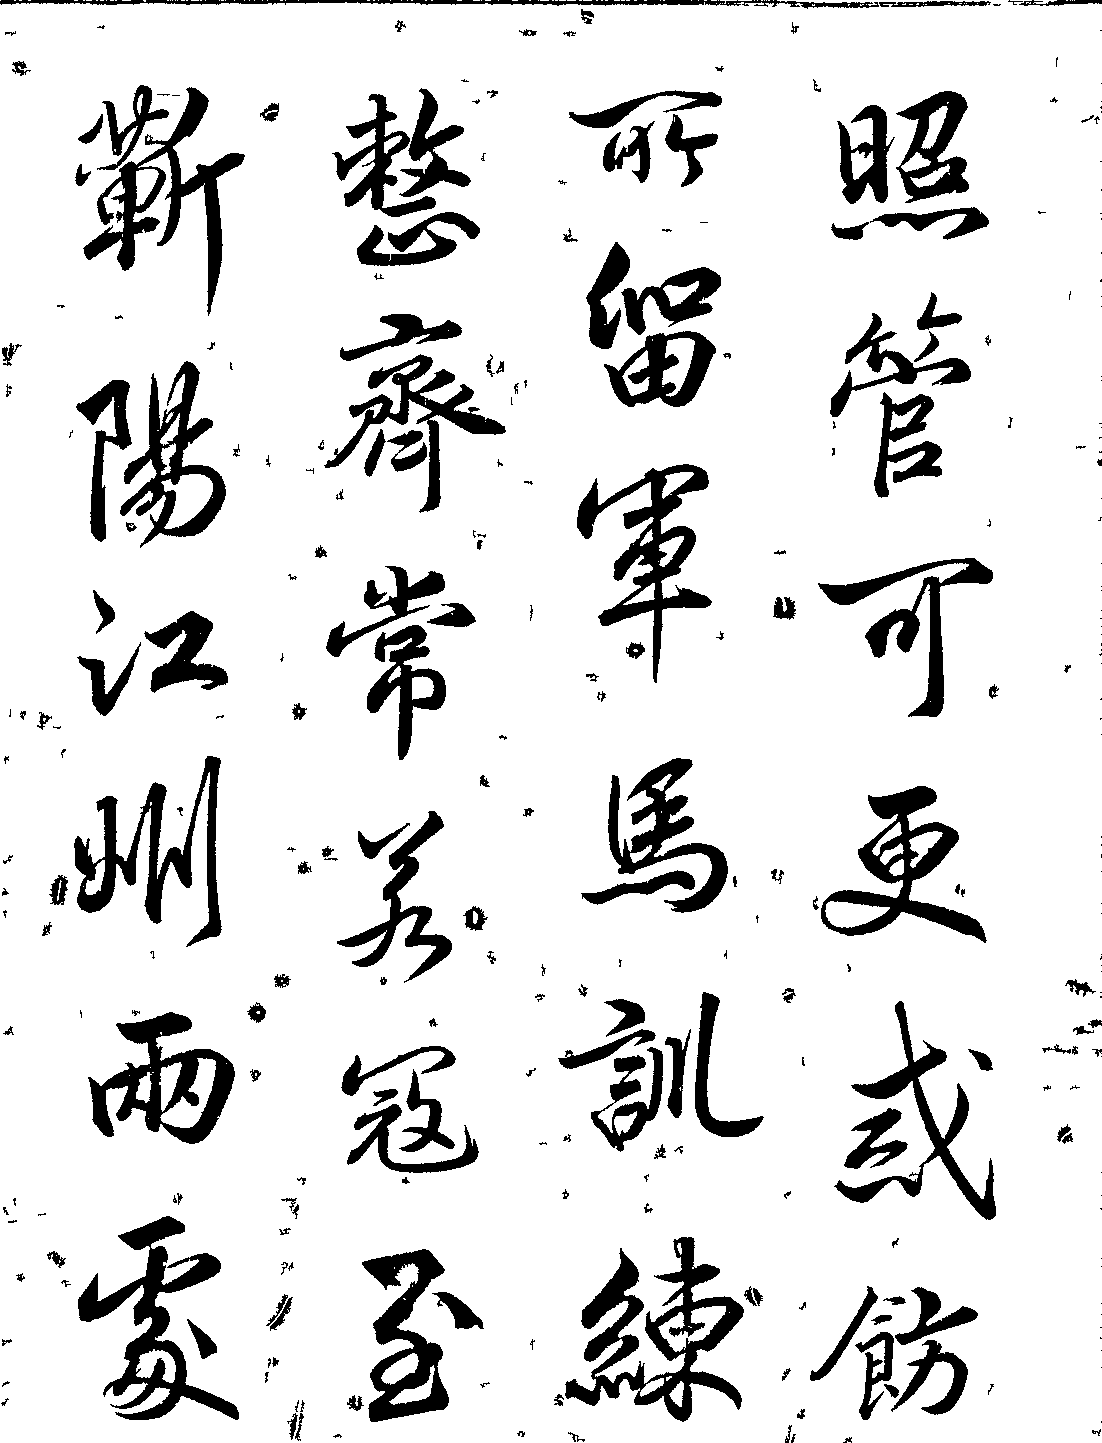 照管可更戒飭
所留軍馬訓練
整齊常若寇至
蘄陽江州兩處